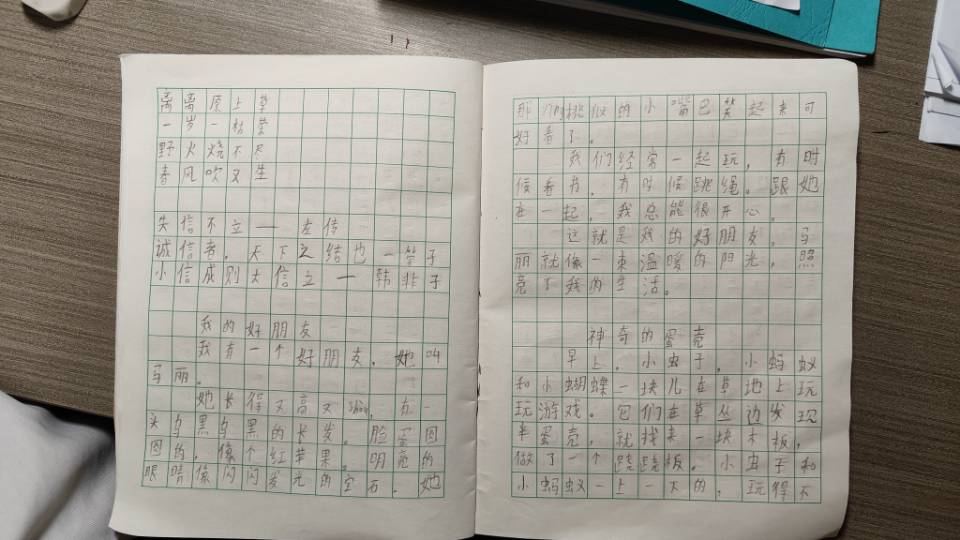 离离原上草
一岁一枯荣
野火烧不尽
春风吹又生
失信不立——左传
诚信者,天下之结也一管子
小信成则大信立一韩非子
我的好朋友
我有一个好朋友,她叫
马丽。
她长得又高又瘦,有一
头乌黑乌黑的长发,脸蛋圆
圆的,像个红苹果。明亮的
眼睛像闪闪发光的宝石。她
那的小嘴巴笑起来可
好看了。
我们经常一起玩,有时
候看书,有时候跳绳。跟她
在一起,我总能很开心。
这就是我的好朋友,马
丽就像一束温暖的阳光,照
亮了我的生活。
神奇的蛋壳
早上,小虫子,小蚂蚁
和小蝴蝶一块儿在草地上玩
玩游戏。它们在草丛边发现
半蛋壳,就找来一块木板,
做了一个跷跷板。小虫子和
小蚂蚁一上一下的,玩得不